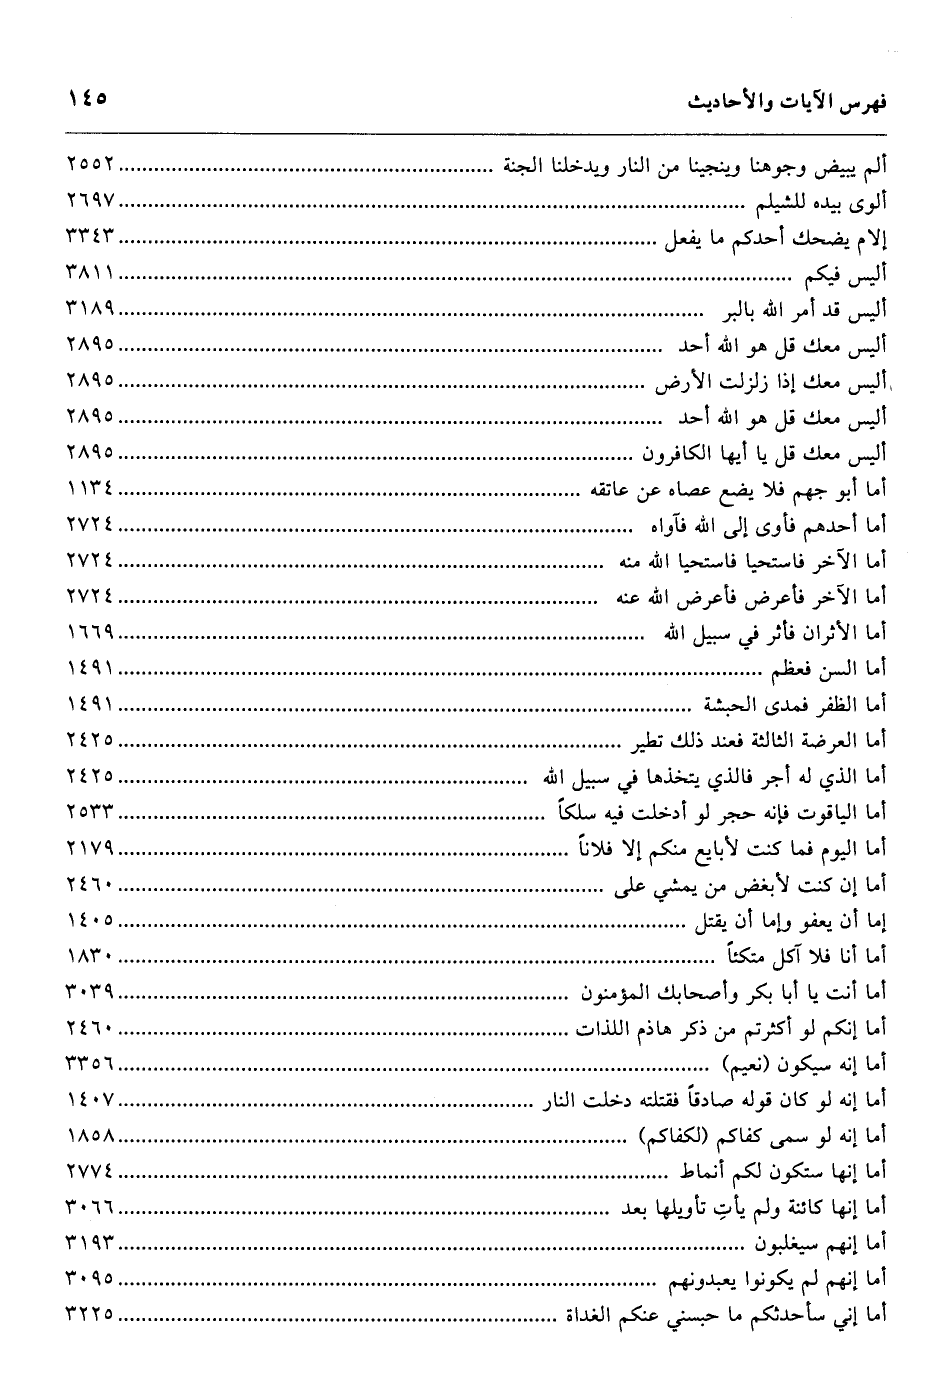 فهرس الآيات والأحاديث ١٤٥
ألم يبيض وجوهنا وينجينا من النار ويدخلنا الجنة ٢٥٥٢
ألوى بيده للشيلم ٢٦٩٧
إلام يضحك أحدكم ما يفعل ٣٣٤٣
أليس فيكم ٣٨١١
أليس قد أمر الله بالبر ٣١٨٩
أليس معك قل هو الله أحد ٢٨٩٥
أليس معك إذا زلزلت الأرض ٢٨٩٥
أليس معك قل هو الله أحد ٢٨٩٥
أليس معك قل يا أيها الكافرون ٢٨٩٥
أما أبو جهم فلا يضع عصاه عن عاتقه ١١٣٤
أما أحدهم فأوى إلى الله فآواه ٢٧٢٤
أما الآخر فاستحيا فاستحيا الله منه ٢٧٢٤
أما الآخر فأعرض فأعرض الله عنه ٢٧٢٤
أما الأثران فأثر في سبيل الله ١٦٦٩
أما السن فعظم ١٤٩١
أما الظفر فمدى الحبشة ١٤٩١
أما العرضة الثالثة فعند ذلك تطير ٢٤٢٥
أما الذي له أجر فالذي يتخذها في سبيل الله ٢٤٢٥
أما الياقوت فإنه حجر لو أدخلت فيه سلكاً ٢٥٣٣
أما اليوم فما كنت لأبايع منكم إلا فلاناً ٢١٧٩
أما إن كنت لأبغض من يمشي على ٢٤٦٠
إما أن يعفو وإما أن يقتل ١٤٠٥
أما أنا فلا آكل متكئاً ١٨٣٠
أما أنت يا أبا بكر وأصحابك المؤمنون ٣٠٣٩
أما إنكم لو أكثرتم من ذكر هاذم اللذات ٢٤٦٠
أما إنه سيكون (نعيم) ٣٣٥٦
أما إنه لو كان قوله صادقاً فقتلته دخلت النار ١٤٠٧
أما إنه لو سمى كفاكم (لكفاكم) ١٨٥٨
أما إنها ستكون لكم أنماط ٢٧٧٤
أما إنها كائنة ولم يأتِ تأويلها بعد ٣٠٦٦
أما إنهم سيغلبون ٣١٩٣
أما إنهم لم يكونوا يعبدونهم ٣٠٩٥
أما إني سأحدثكم ما حبسني عنكم الغداة ٣٢٢٥